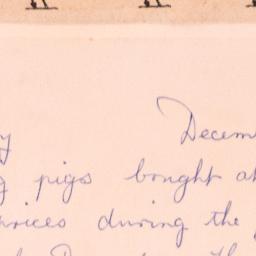 y Decem
g pigs bought at
prices during the